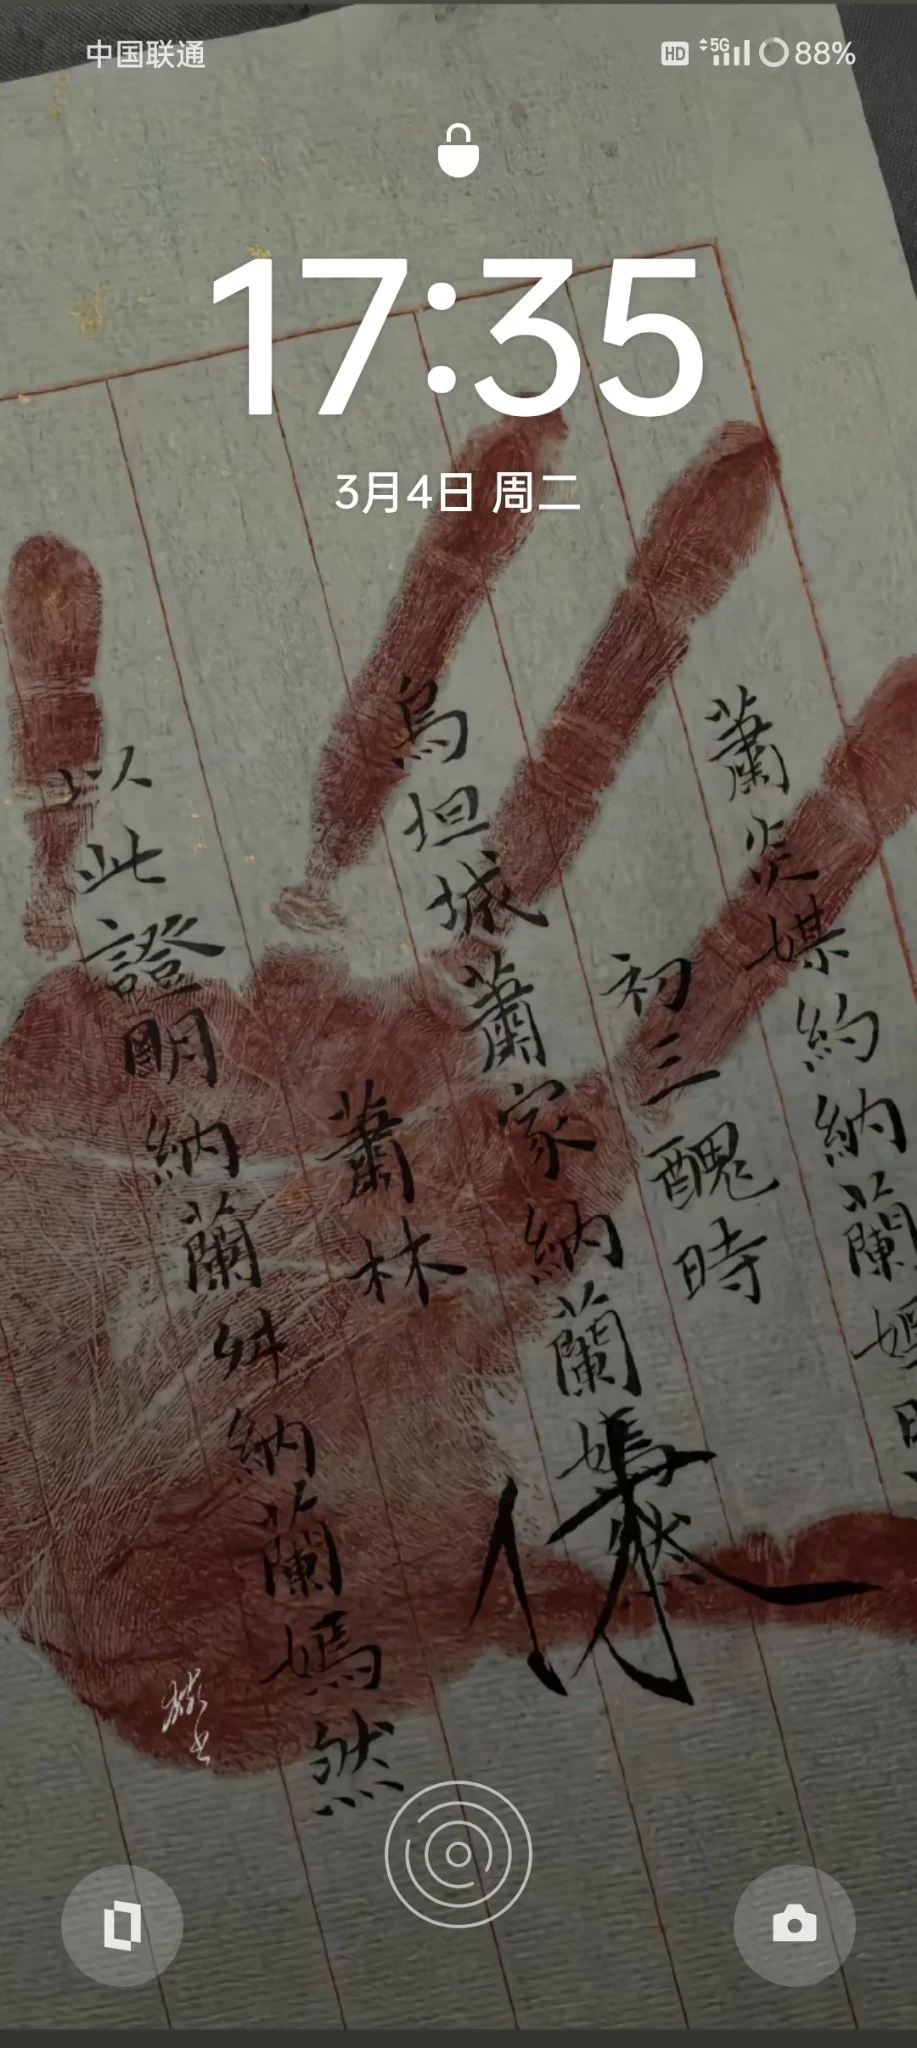 中国联通
HD 5G 88%
17:35
3月4日 周二
蕭炎媒約納蘭嫣
初三醜時
烏坦城蕭家納蘭嫣然
蕭林
以此證明納蘭舛納蘭嫣然